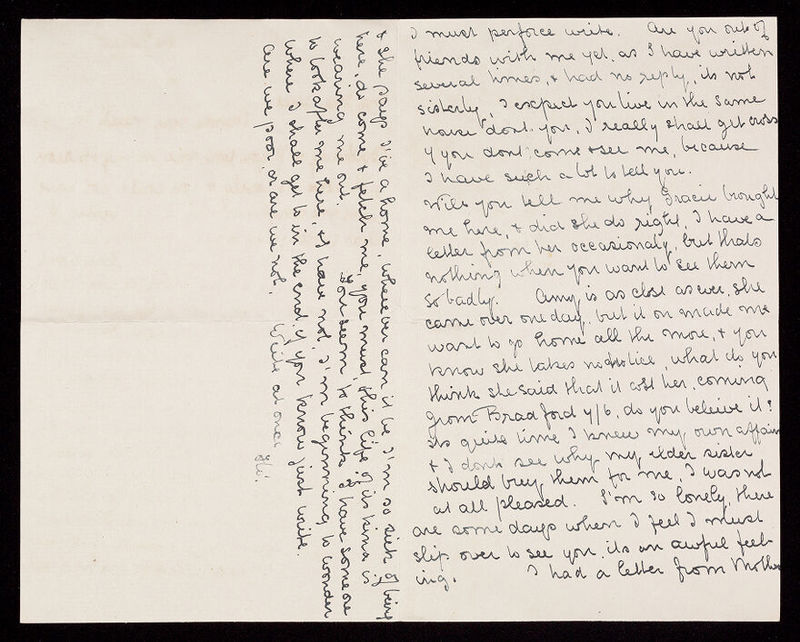 I must perforce write. Are you out of
friends with me yet, as I have written
several times, & had no reply, its not
sisterly, I expect you live in the same
house dont you, I really shall get cross
if you dont come & see me, because
I have such a lot to tell you.
Will you tell me why Gracie brought
me here, & did she do right, I have a
letter from her occasionaly, but thats
nothing when you want to see them
so badly. Amy is as close as ever, she
came over one day, but it on made me
want to go home all the more, & you
know she takes no notice, what do you
think she said that it cost her, coming
from Bradford 4/6, do you beleive it?
its quite time I knew my own affairs
& I dont see why my elder sister
should buy them for me, I was not
at all pleased. I'm so lonely, there
are some days when I feel I must
slip over to see you its an awful feel-
ing. I had a letter from Mother
& she says I've a home, wherever can it be I'm so sick of being
here, do come & fetch me, you must, this life of its kind is
wearing me out. You seem to think I have someone
to look after me here & I have not. I'm beginning to wonder
where I shall get to in the end, if you know just write.
are we poor, or are we not. Write at once